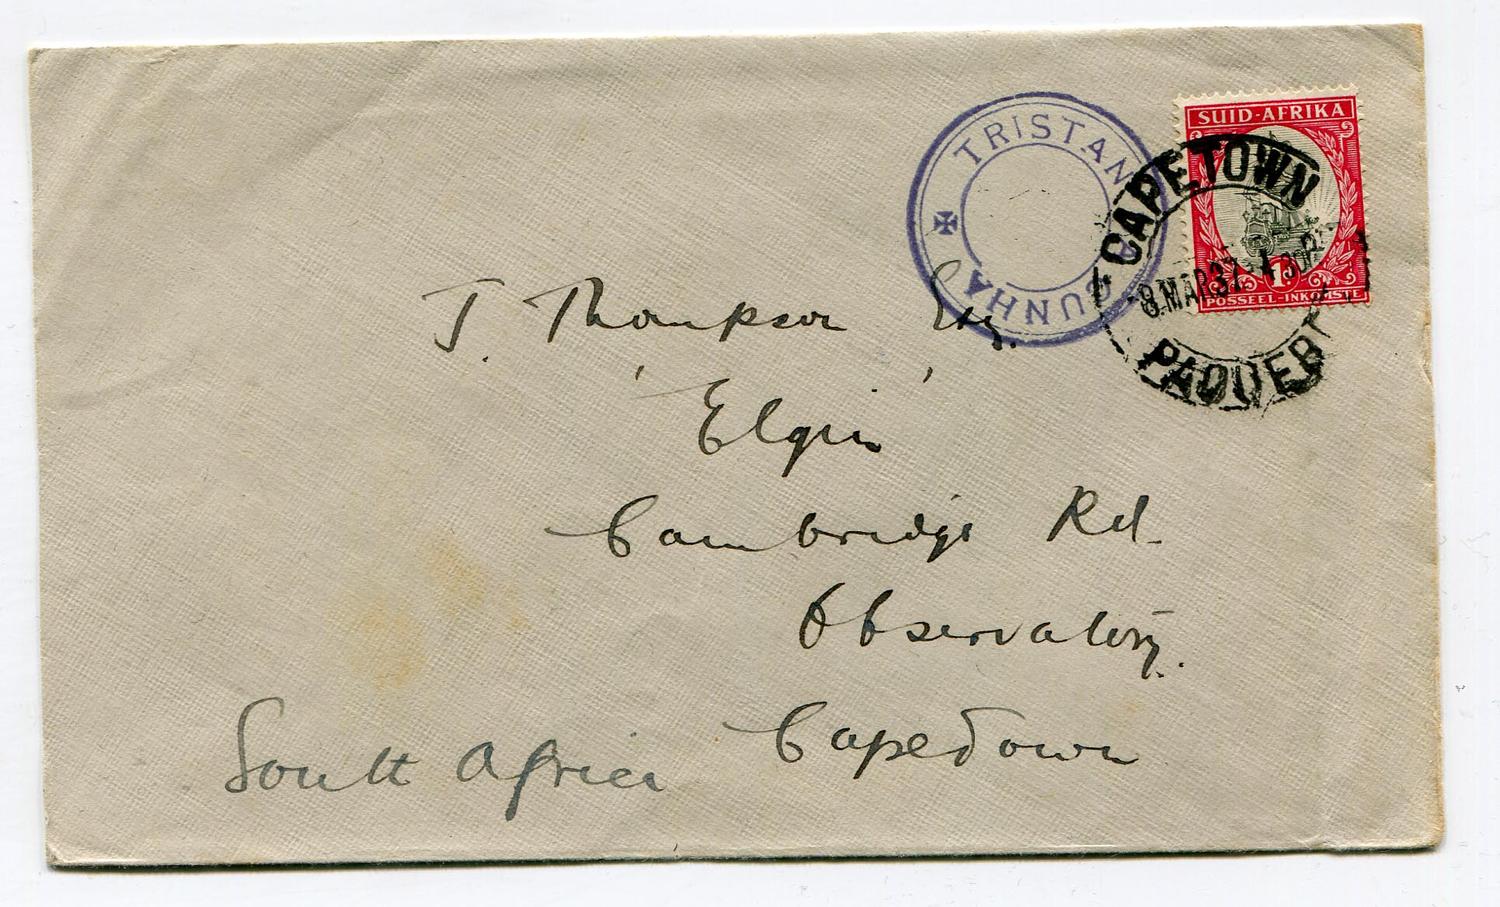 SUID-AFRIKA
1D
POSSEEL-INKOMSTE
TRISTAN DA CUNHA
CAPETOWN
8.MAR37
PAQUEBOT
J. Thompson Esq.
'Elgin'
Cambridge Rd
Observatory.
Capetown
South Africa